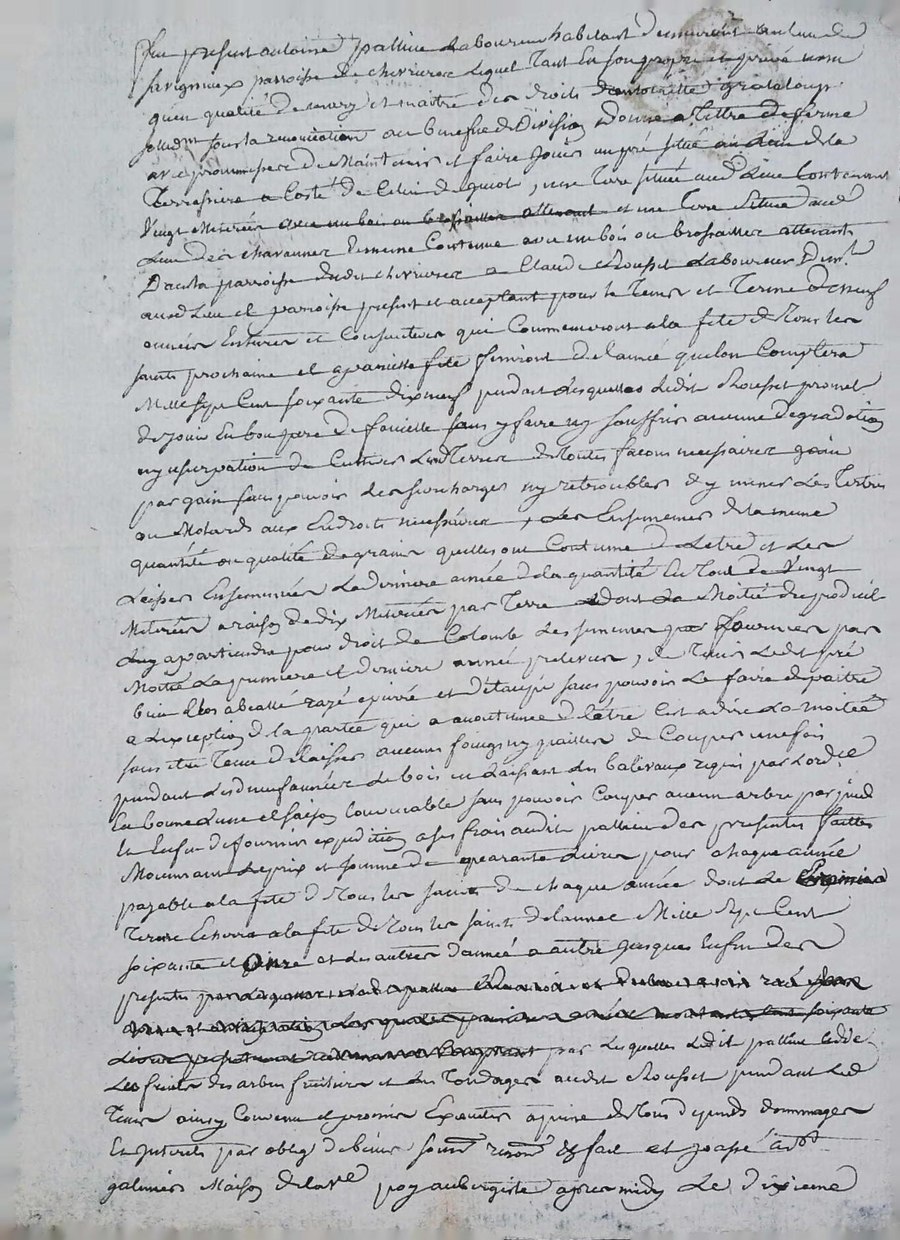 fut present antoine pattiue Laboureur habitant demeurant au lieu de
savigneux parroisse de chevrieres Lequel tant en son propre et privé nom
qu'en qualité de mary et maitre des droits d'antoinette grataloup
sous la renonciation au benefice de Division Donne a Tittre de ferme
avec promesses de Maintenir et faire Jouir un pré situé au Lieu de la
Terrassiere a Costé de Celui de guiot, une Terre située aud Lieu Contenant
Vingt Meterées avec un bois ou brossailles attenant et une Terre située aud
Lieu des chavannes Contenue avec un bois ou brossailles attenant
Dans la parroisse dudit chevrieres a Claude Rousset Laboureur Dem.t
aud Lieu et parroisse present et acceptant pour le Tems et Terme de neuf
années Entieres et Consecutives qui Commenceront a la fete de Tous les
saints prochaine et a pareille fete finiront de l'année que lon Comptera
Mille Sept Cent soixante dix neuf pendant Lesquelles Ledit Rousset promet
de Jouir En bon pere de famille sans y faire ny souffrir aucune degradation
ny usurpation de Cultiver Lesd Terres de toutes facons necessaires gain
par gain sans pouvoir les surcharger ny retroubler d'y miner Les Tertres
ou Motards aux Endroits necessaires, Les Ensemencer de la meme
quantité ou qualité de grains quelles ont Coutume de Letre et Les
Laisser Ensemencées La derniere année de la quantité En Tout de Vingt
Meterées a raison de dix Meterées par Terre dont La Moitié du produit
Luy apartiendra pour droit de Colonle Les semences fournies par
Moitié La premiere et derniere année prelevées, de Tenir Ledit pré
bien Clos abealé razé epierré et d'étaupé sans pouvoir Le faire depaitre
a Lexception de la partie qui a acoutumée de l'être Cest a dire La moitié
sans être Tenu de laisser aucuns foings ny pailles de Couper une fois
pendant lesd neuf années Le bois en Laissant des balivaux requis par Lord.ce
En bonne Lune et saison Convenable sans pouvoir Couper aucun arbre par pied
Et Enfin de fournir expedition a ses frais audit pattiue des presentes faittes
Moienant Le prix et somme de quarante Livres pour chaque année
payable a la fete de Tous les saints de chaque année dont Le premier
Terme Echerra a la fete de Tous les saints de lannee Mille Sept Cent
soixante et Onze et Les autres d'année a autre Jusques Enfin des
presentes
par Lesquelles Ledit pattiue Cedde
Les fruits des arbres fruitiers et Les Tondages audit Rousset pendant Led
Tems ainsy Convenu et promis Executer a peine de Tous depends dommages
Et Interets par oblig. de biens soum renon fait et passé aud
galmier Maison de la v.e poy aubergiste apres midy Le dixieme